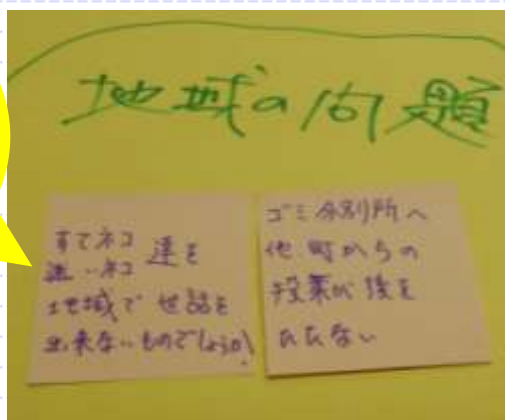 地域の問題
すてネコ
迷いネコ 達を
地域で 世話を
出来ないものでしょうか!
ゴミ分別所へ
他町からの
投棄が後を
たたない